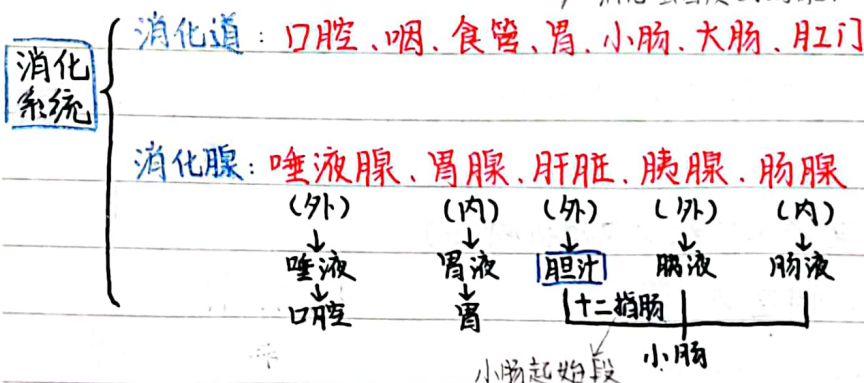 消化道：口腔、咽、食管、胃、小肠、大肠、肛门
消化
系统
消化腺：唾液腺、胃腺、肝脏、胰腺、肠腺
（外） （内） （外） （外） （内）
唾液 胃液 胆汁 胰液 肠液
口腔 胃 十二指肠
小肠
小肠起始段